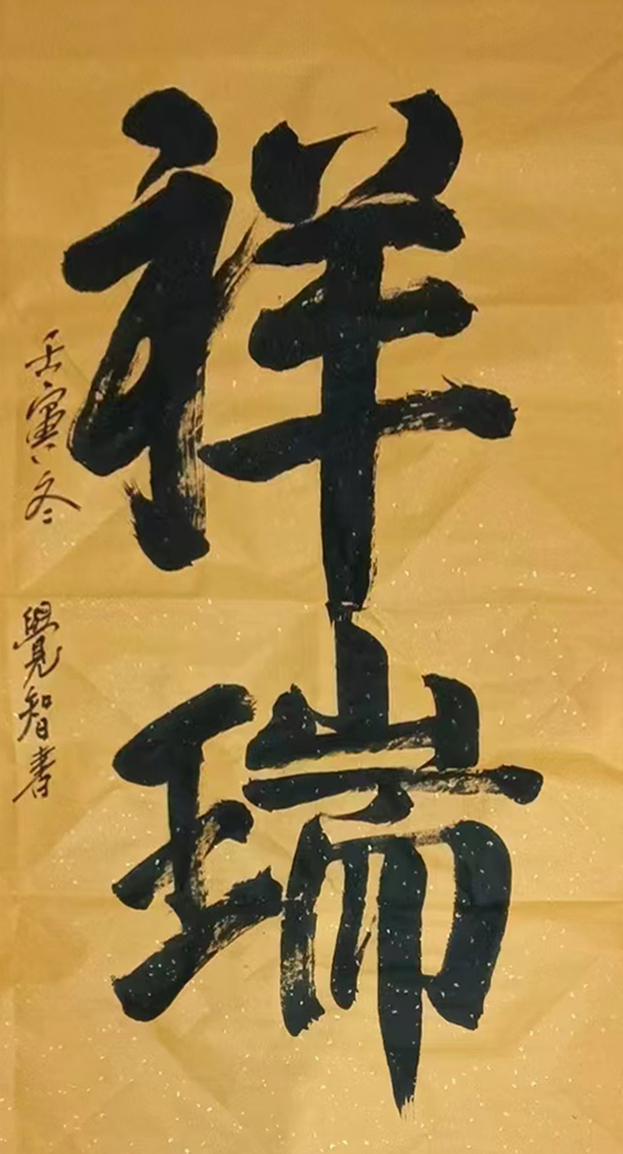 祥瑞
壬寅冬
覺智書